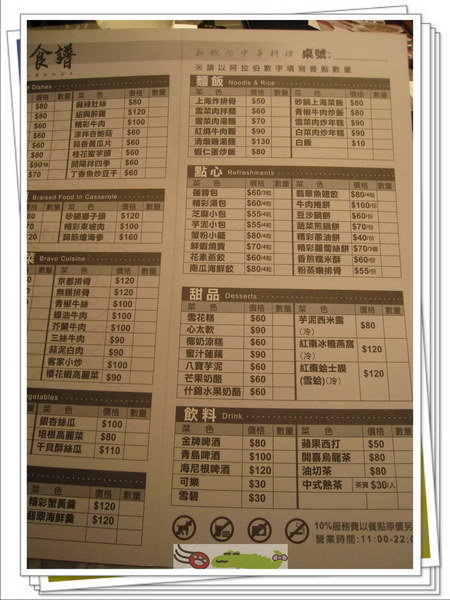 食譜
新飯金中華料理 桌號:
※請以阿拉伯數字填寫餐點數量
d Dishes
價格 數量 菜色 價格 數量
$80 麻辣肚絲 $80
$60 紹興醉雞 $120
$80 精彩牛肉 $100
$60 涼拌杏鮑菇 $60
$80 蒜香黃瓜片 $60
$80 桂花蜜芋頭 $60
$90/個 開陽拌四季 $60
$70 丁香魚炒豆干 $60
Braised Food In Casserole
價格 數量 菜色 價格 數量
$120 砂鍋獅子頭 $120
$70 精彩東坡肉 $100
$120 蹄筋燴海參 $160
菜 Bravo Cuisine
菜色 價格 數量
京都排骨 $120
無錫排骨 $120
青椒牛絲 $100
蠔油牛肉 $100
芥蘭牛肉 $100
三絲牛肉 $90
蒜泥白肉 $90
客家小炒 $100
櫻花蝦高麗菜 $90
egetables
菜色 價格 數量
銀杏絲瓜 $100
培根高麗菜 $80
干貝酥絲瓜 $110
菜色 價格 數量
精彩蟹黃羹 $120
翡翠海鮮羹 $120
麵飯 Noodle & Rice
菜色 價格 數量 菜色 價格 數量
上海炸排骨 $50 砂鍋上海菜飯 $80
雪菜肉拌麵 $60 青椒牛肉炒飯 $80
雪菜肉湯麵 $70 雪菜肉炒年糕 $90
紅燒牛肉麵 $90 白菜肉炒年糕 $90
清燉雞湯麵 $130 白飯 $10
蝦仁蛋炒飯 $80
點心 Refreshments
菜色 價格 數量 菜色 價格 數量
蓮蓉包 $60/4粒 翡翠魚翅餃 $80/4粒
精彩湯包 $60/4粒 牛肉捲餅 $100/份
芝麻小包 $55/4粒 豆沙鍋餅 $60/份
芋泥小包 $55/4粒 蔬菜煎鍋餅 $70/份
蟹粉小籠 $80/4粒 精彩蔥油餅 $40/份
鮮蝦燒賣 $70/4粒 精彩蘿蔔絲餅 $70/3個
花素蒸餃 $60/4粒 香煎糯米酥 $60/份
南瓜海鮮餃 $80/4粒 粉蒸嫩排骨 $55/份
甜品 Desserts
菜色 價格 數量 菜色 價格 數量
雪花糕 $60 芋泥西米露(冷) $80
心太軟 $90
椰奶涼糕 $60 紅棗冰糖燕窩(冷) $120
蜜汁蓮藕 $90
八寶芋泥 $60 紅棗蛤士膜(雪蛤)(冷) $120
芒果奶酪 $60
什錦水果奶酪 $60
飲料 Drink
菜色 價格 數量 菜色 價格 數量
金牌啤酒 $80 蘋果西打 $50
青島啤酒 $100 開喜烏龍茶 $80
海尼根啤酒 $120 油切茶 $80
可樂 $30 中式熱茶 茶資 $30/人
雪碧 $30
10%服務費以餐點原價另
營業時間:11:00-22:0